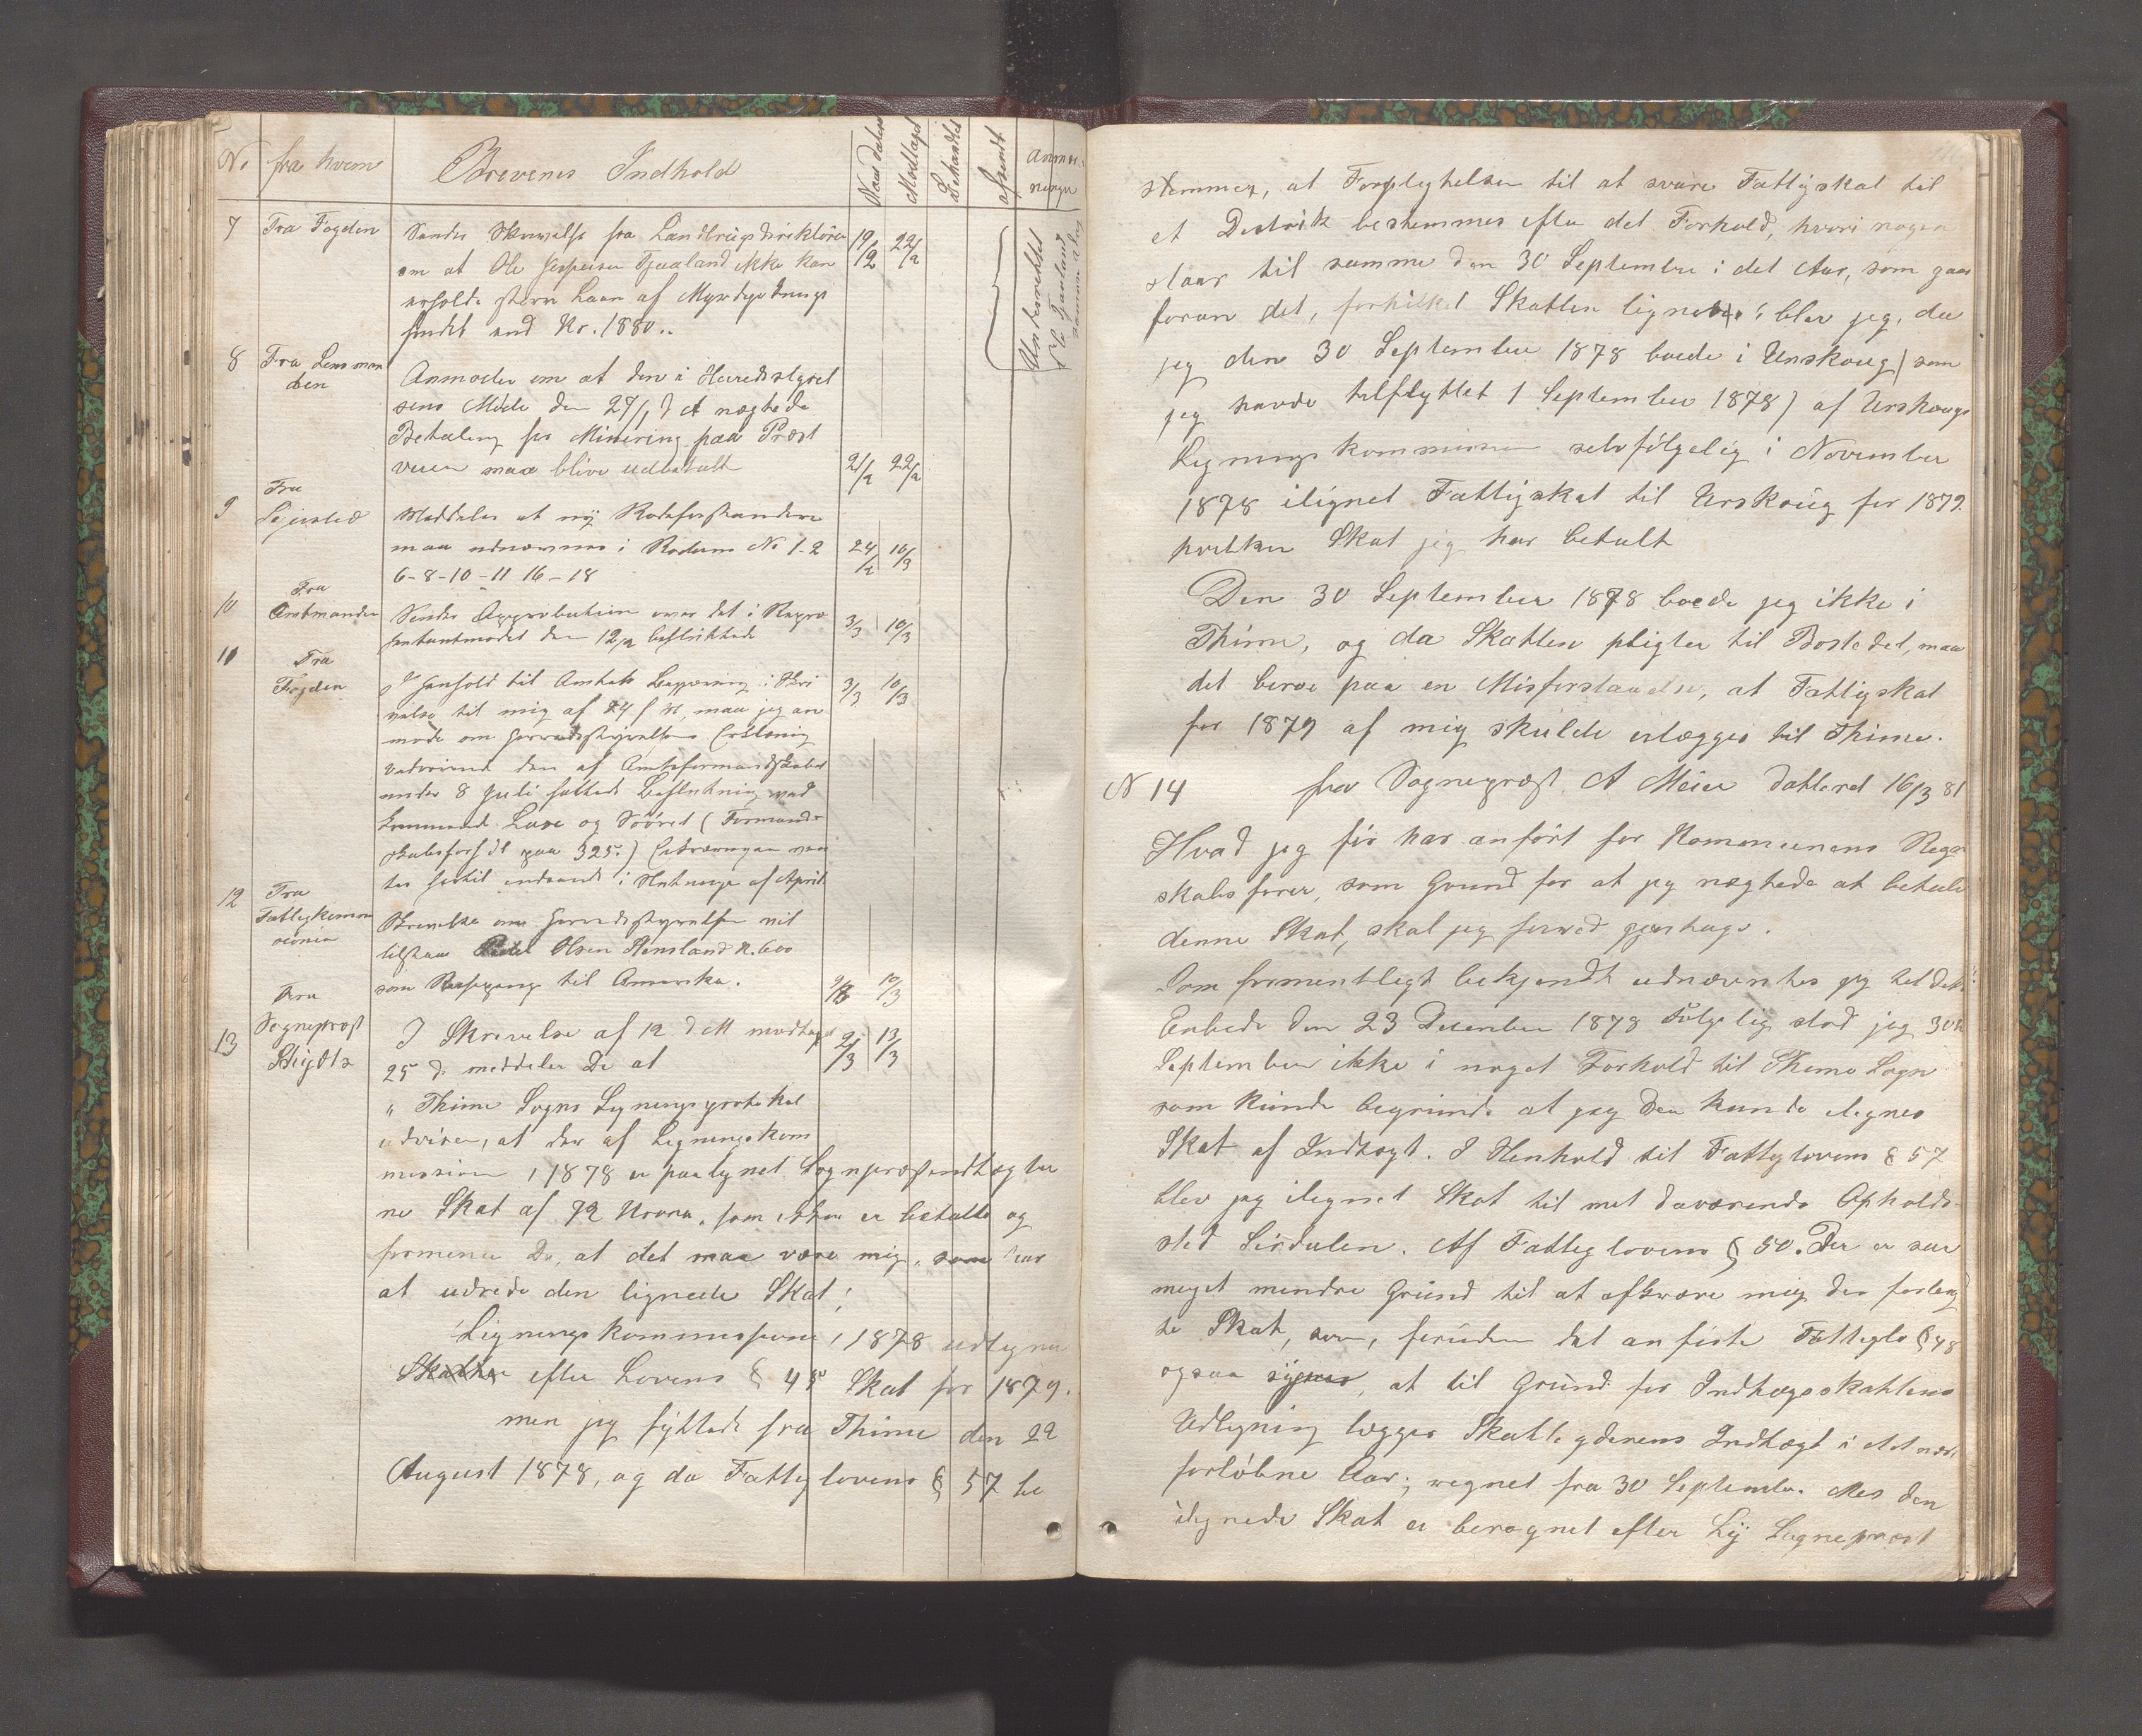 No fra hvem Brevenes Indhold Naar dateret Modtaget Behandlet afsendt Anmær-
ninger
7 Fra Fogden Sender Skrivelse fra Landbrugsdirektören 19/2 22/2
om at Ole Jespersen Tjaaland ikke kan
erholde större Laan af Myrdyrdnings
fondet end Kr. 1880..
8 Fra Lensman
den
Anmoder om at den i Herredsstyrel
sens Möde den 27/1 d A nægtede
Betaling for Minering paa Præst
veien maa blive udbetalt 21/2 22/2
9 Fra
Sejersted Meddeler at ny Rodeforstandere
maa udnævnes i Roderne No 1-2 24/2 10/3
6-8-10-11 16-18
10 Fra
Amtmanden Sender Approbation over det i Repræ
sentantmödet den 12/2 besluttede 3/3 10/3
11 Fra
Fogden I Henhold til Amtets Begjæring i Skri 3/3 10/3
velse til mig af 24 f M, maa jeg an
mode om Herredsstyrelsens Erklæring
vedrörende den af Amtsformandskabet
under 8 Juli fattede Beslutning ved
kommende Luse og (Formand-
skabsforh dl paa 325.) Erklæringen ven
tes hertil indsendt i Slutningen af April
12 Fra
Fattigkomm
sionen
Skrivelse om Herredsstyrelsen vil
tilstaa Olsen Hensland K. 600
som Reisepenge til Amerika. 9/3 10/3
13 Fra
Sognepræst
I Skrivelse af 12 d M modtaget 2/3 13/3
25 d. meddeler De at
" Thime Sogns Ligningsprotokol
udviser, at der af Ligningskom
missionen i 1878 er paalignet Sognepræstindtægter
ne Skat af 72 Kroner, som ikke er betalte og
formener De, at det maa være mig, som har
at udrede den lignede Skat;
Ligningskommissionen i 1878 udligner
Skatten efter Lovens § 45 Skat for 1879.
men jeg flyttede fra Thime den 22
August 1878, og da Fattiglovens § 57 be
Undermeldt
stemmer, at Forpligtelsen til at svare Fattigskat til
et Distrikt bestemmes efter det Forhold, hvori nogen
staar til samme den 30 September i det Aar, som gaar
foran det, forhvilket Skatten lignes; blev jeg, der
jeg den 30 September 1878 boede i Urskoug (som
jeg havde tilflyttet 1 September 1878) af Urskougs
Ligningskommission selvfölgelig i November
1878 ilignet Fattigskat til Urskoug for 1879.
hvilken Skat jeg har betalt
Den 30 September 1878 boede jeg ikke i
Thime, og da Skatten pligter til Bostedet, maa
det beroe paa en Misforstaaelse, at Fattigskat
for 1879 af mig skulde erlægges til Thime.
N 14 fra Sognepræst A Meier datteret 16/3 81
Hvad jeg för har anfört for Kommunens Regn
skabsförer, som Grund for at jeg nægtede at betale
denne Skat, skal jeg herved gjentage.
Som formentligt bekjendt udnævntes jeg til dette
Embede den 23 December 1878 Fölgelig stod jeg 30te
September ikke i noget Forhold til Thime Sogn
som kunde begrunde at jeg der kunde ilignes
Skat af Indtægt. I Henhold til Fattiglovens § 57
blev jeg ilignet Skat til mit daværende Opholds-
sted Sirdalen. Af Fattiglovens § 50. Der er saa
meget mindre Grund til at afkræve mig den forlang
te Skat, som, foruden det anförte Fattiglo § 48
ogsaa synes, at til Grund for Indtægsskattens
Udligning lægges Skatteyderens Indtægt i det næst
forlöbne Aar; regnet fra 30 September. Mes den
ilignede Skat er beregnet efter Lÿ Sognepræst